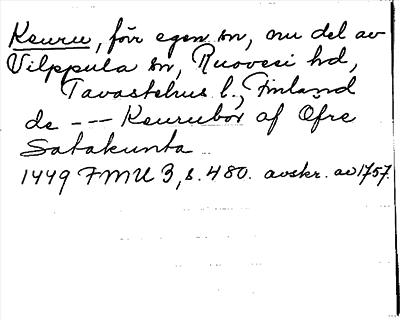 Keuru, förr egen sn, nu del av
Vilppula sn, Ruovesi hd,
Tavastehus l., Finland
de --- Keurubor af Ofre
Satakunta
1449 FMU 3, s. 480. avskr. av 1757.